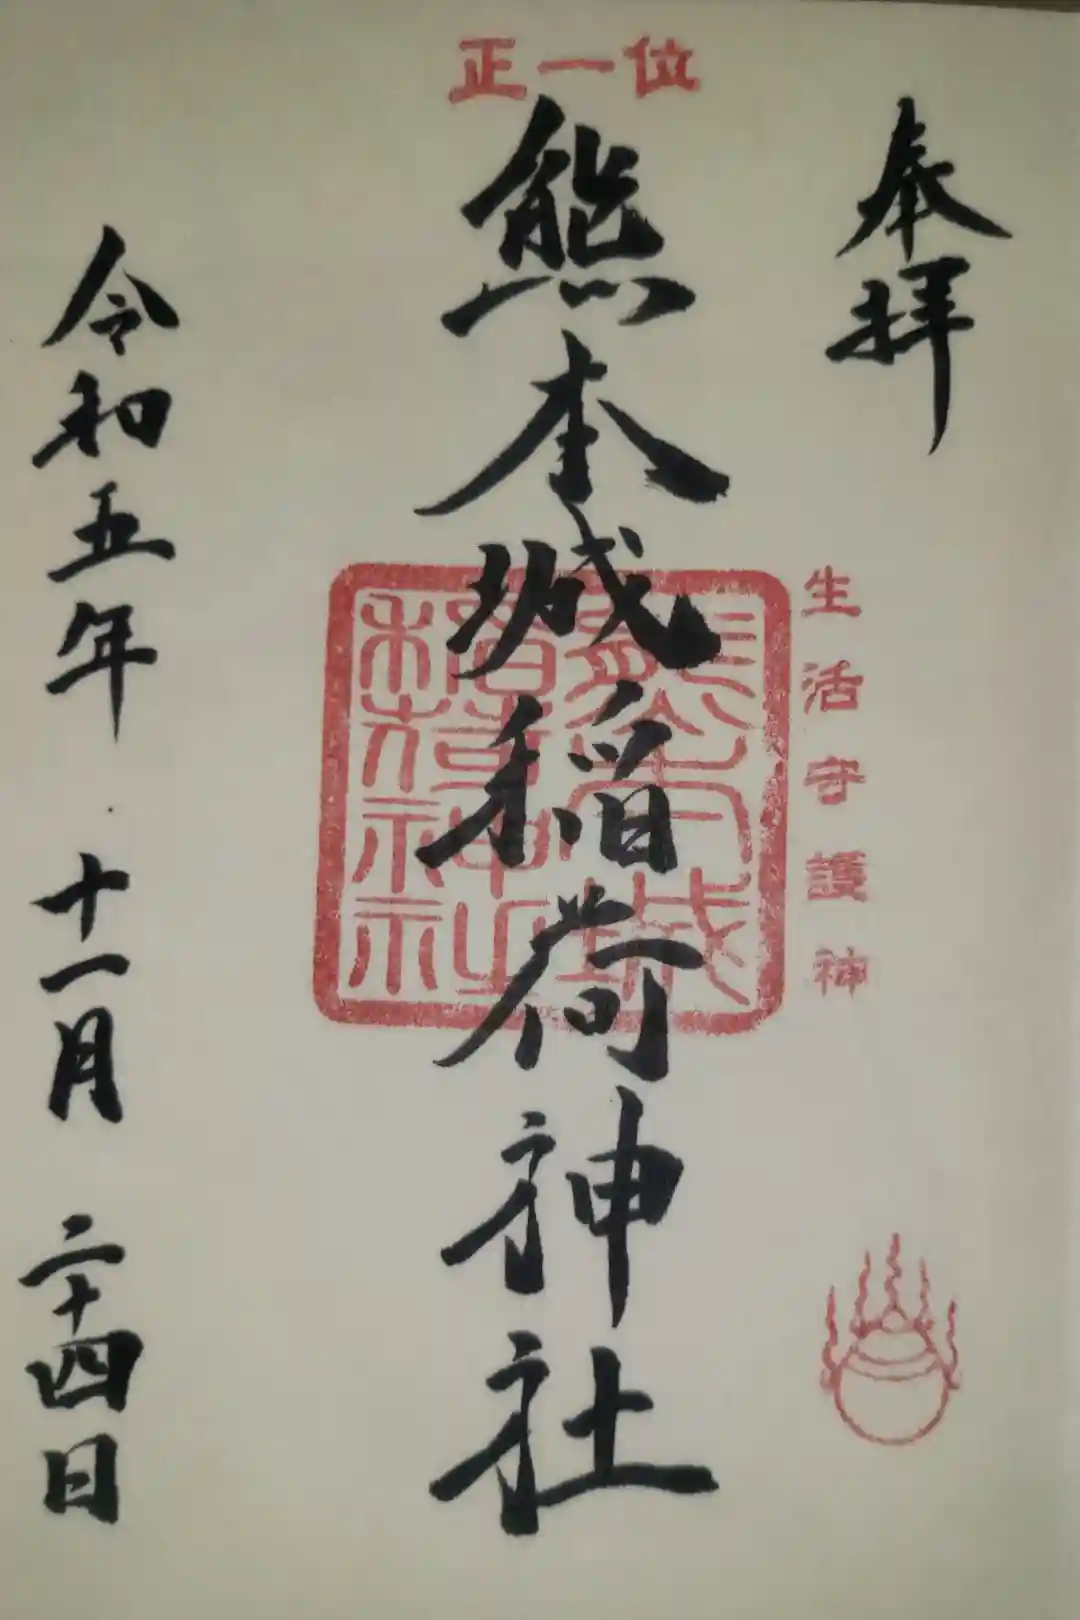 奉拝
生活守護神
正一位
熊本城稲荷神社
熊本城
稲荷神社
令和五年 十一月 二十四日